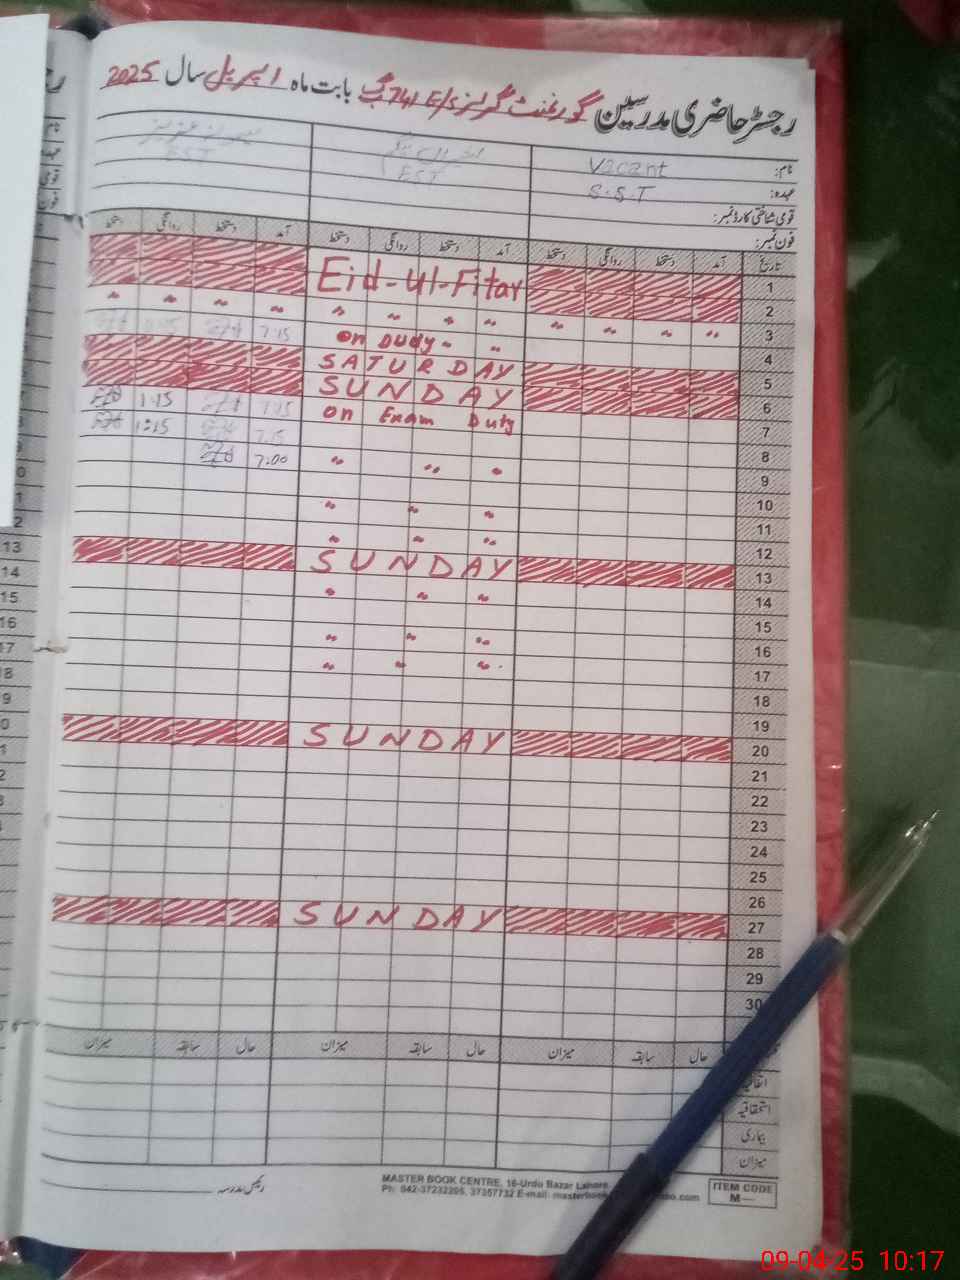 رجسٹر حاضری مدرسین گورنمنٹ گرلز E/S 741 گ ب بابت ماہ اپریل سال 2025
نام: Vacant
عہدہ: S.S.T EST EST
قومی شناختی کارڈ نمبر:
فون نمبر:
تاریخ آمد دستخط روانگی دستخط آمد دستخط روانگی دستخط آمد دستخط روانگی دستخط
1 Eid-Ul-Fitar
2
3 " " " " " " " " " " " "
4 on Duty - " 7.15
5 SATURDAY
6 SUNDAY
7 on Exam Duty 7.15 1:15
8 7.15 1:15
9 " " " 7.00
10
11 " " "
12 " " "
13 SUNDAY
14 " " "
15
16 " " "
17 " " "
18
19
20 SUNDAY
21
22
23
24
25
26
27 SUNDAY
28
29
30
حال سابقہ میزان حال سابقہ میزان حال سابقہ میزان
اتفاقیہ
استحقاقیہ
بیماری
میزان
رئیس مدرسہ
MASTER BOOK CENTRE, 16-Urdu Bazar Lahore
Ph: 042-37232205, 37357732 E-mail:
ITEM CODE
M—
13
14
15
16
17
18
09-04-25 10:17